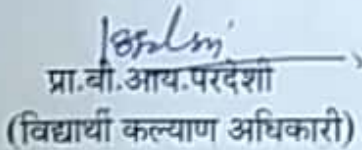 प्रा.वी.आय.परदेशी
(विद्यार्थी कल्याण अधिकारी)